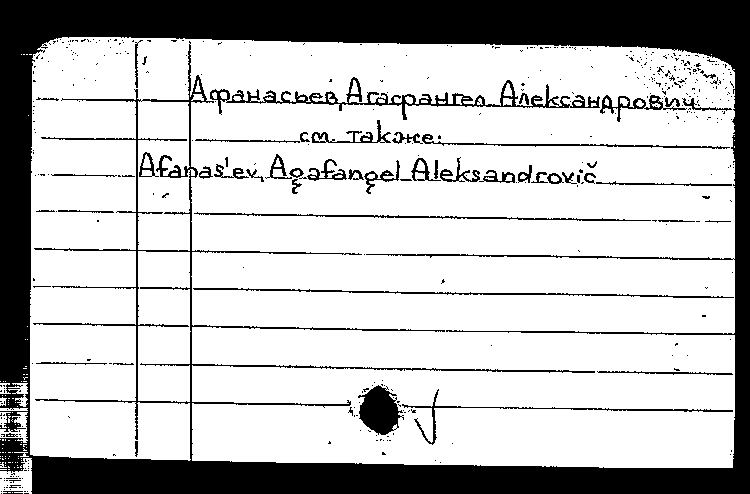 Афанасьев, Агафангел Александрович
см. также:
Afanas'ev, Agafangel Aleksandrovič